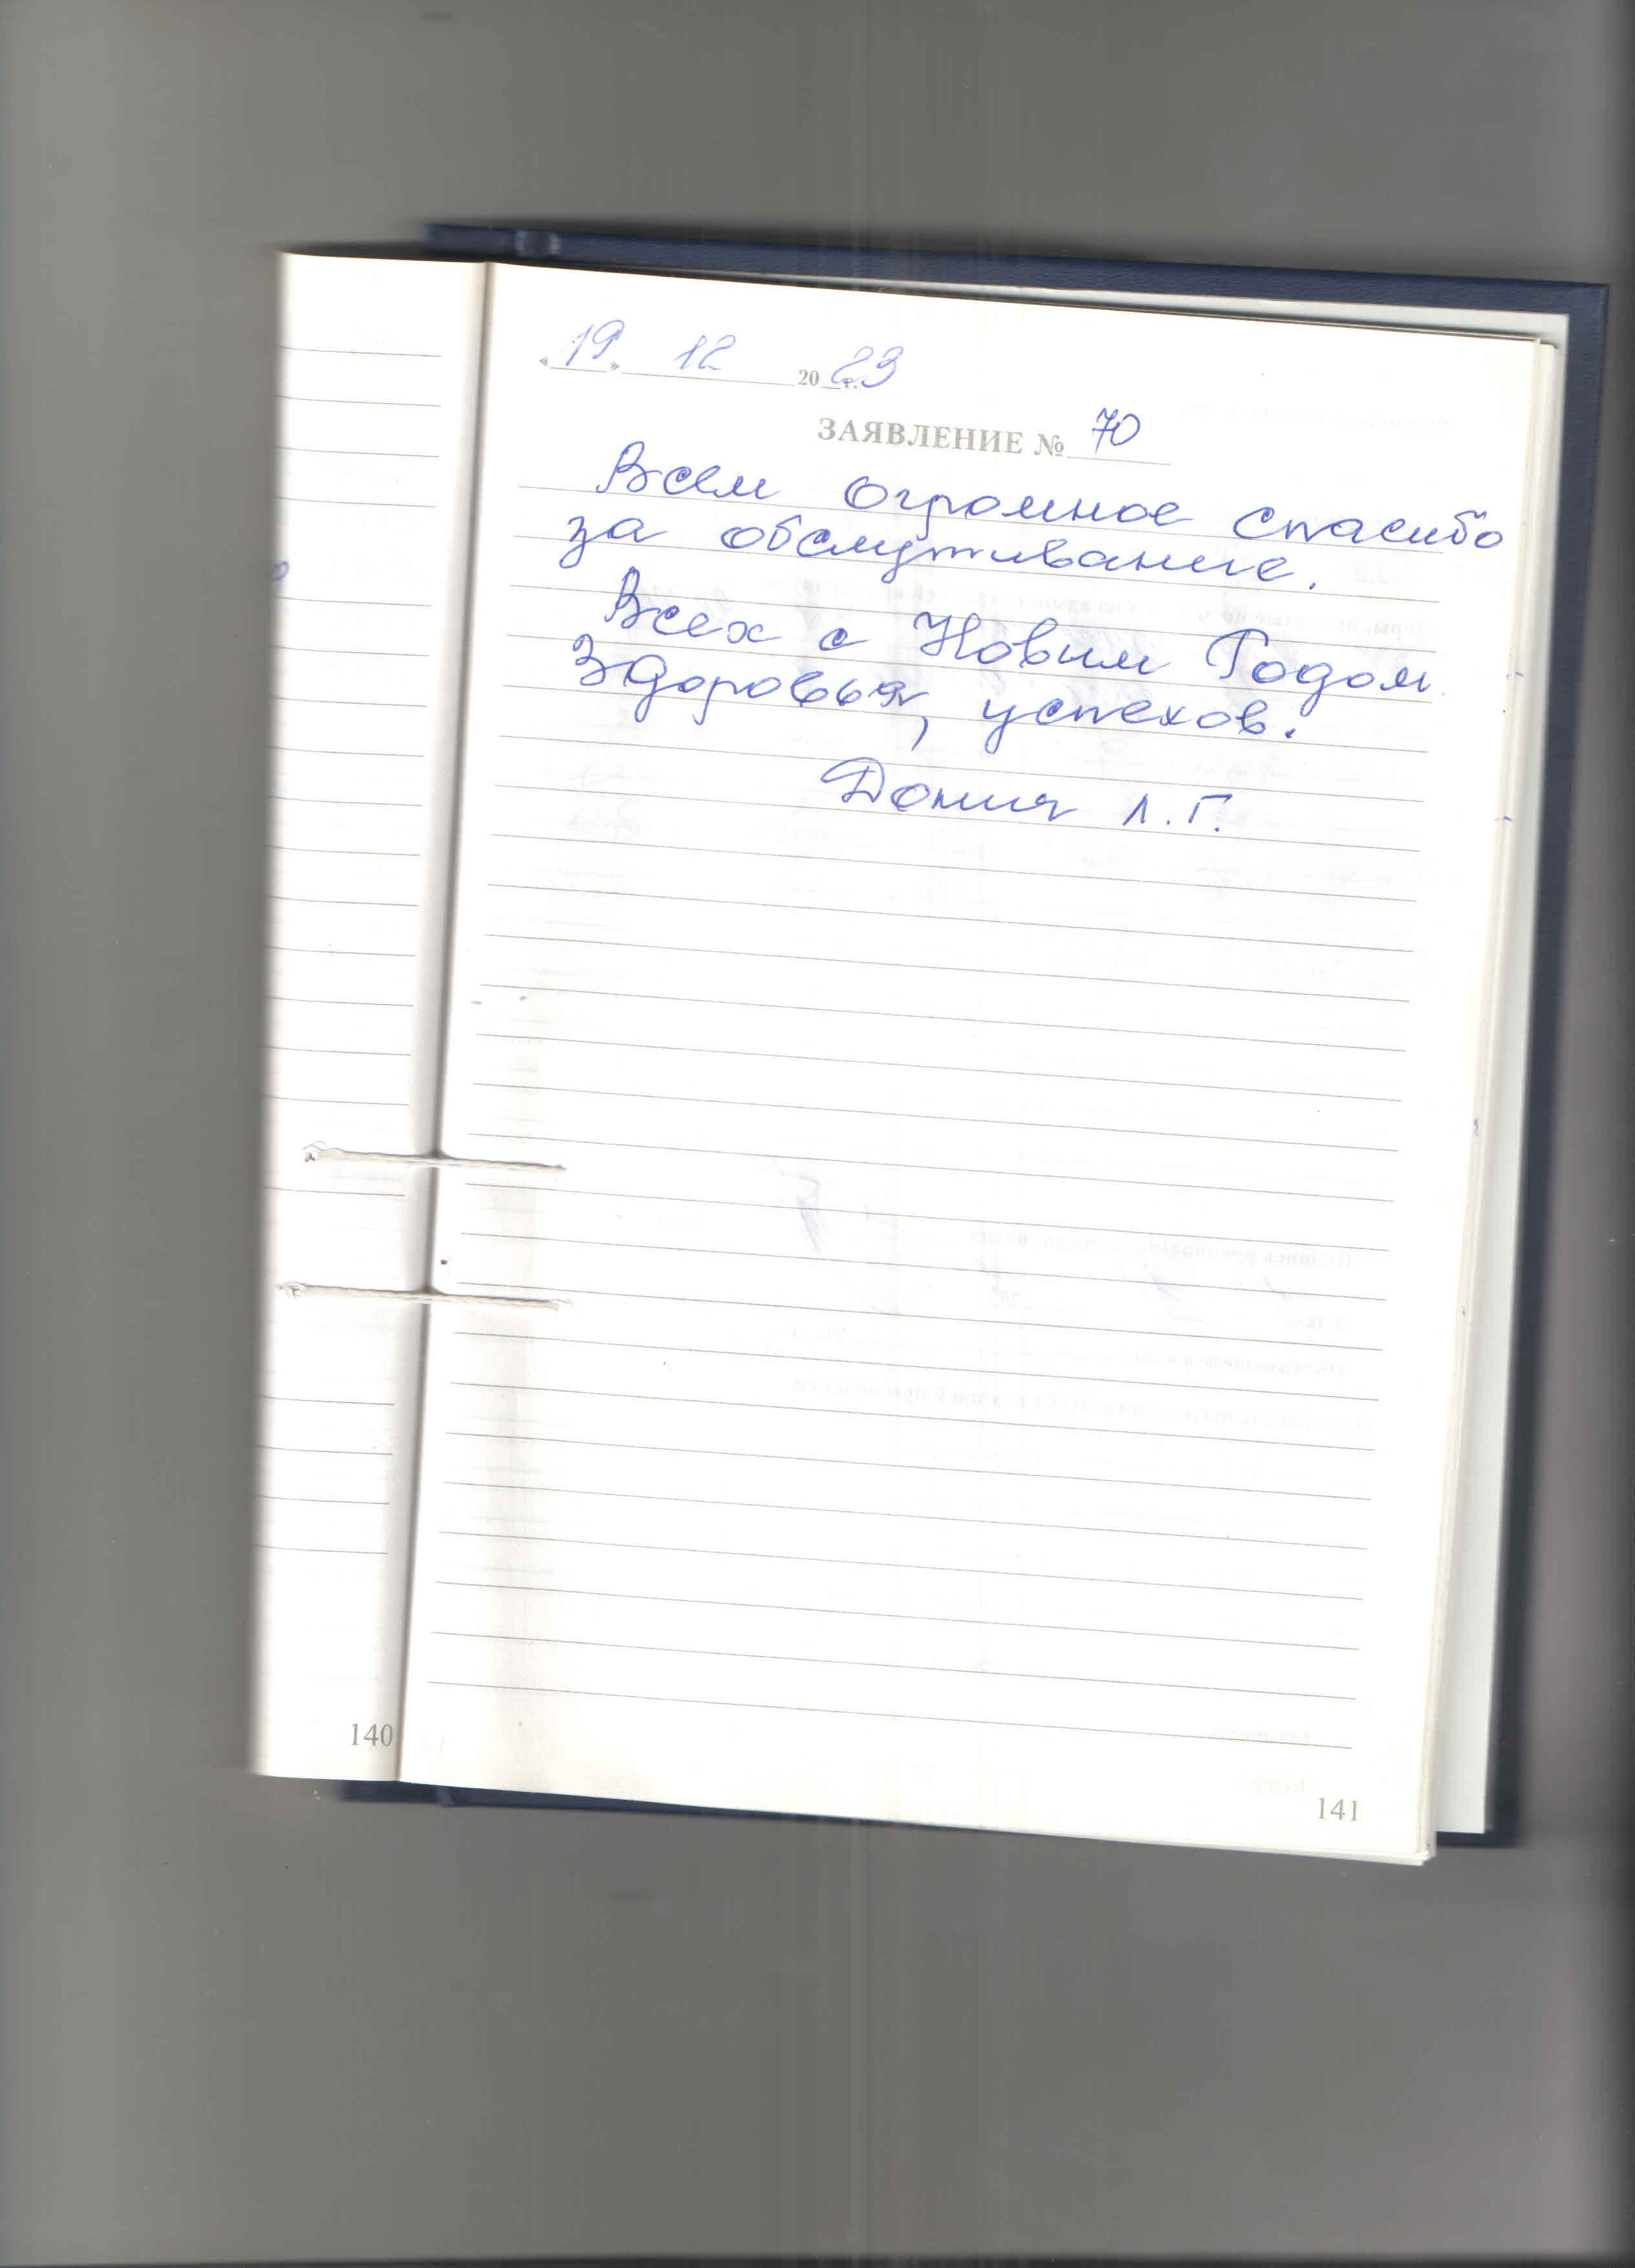 « 19 » 12 2023 г.
ЗАЯВЛЕНИЕ № 70
Всем огромное спасибо
за обслуживание.
Всех с Новым Годом
Здоровья, успехов.
Л.Г.
140
141